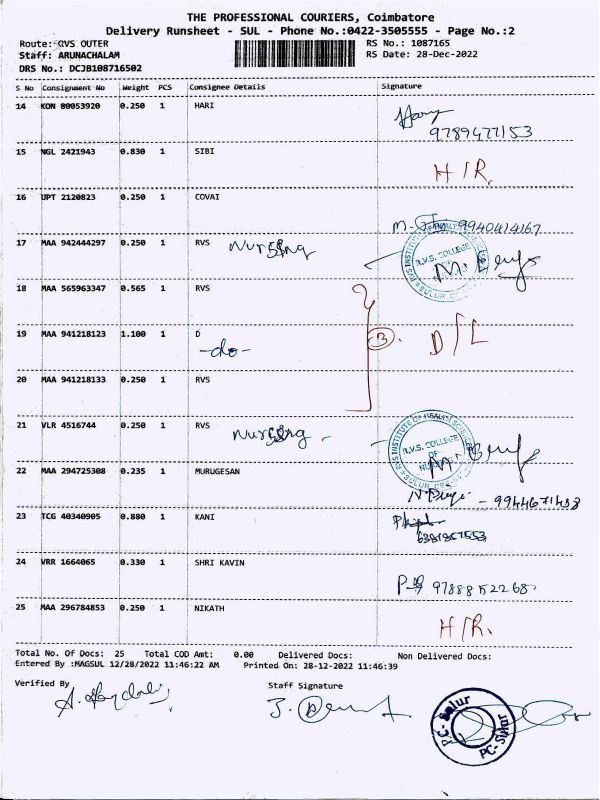 THE PROFESSIONAL COURIERS, Coimbatore
Delivery Runsheet - SUL - Phone No.:0422-3505555 - Page No.:2
Route: RVS OUTER RS No.: 1087165
Staff: ARUNACHALAM RS Date: 28-Dec-2022
DRS No.: DCJB108716502
S No Consignment No Weight PCS Consignee Details Signature
14 KON 80053920 0.250 1 HARI
9789477153
15 NGL 2421943 0.830 1 SIBI
H/R.
16 UPT 2120823 0.250 1 COVAI
9940414167
17 MAA 942444297 0.250 1 RVS Nursing
R.V.S. COLLEGE
SULUR
18 MAA 565963347 0.565 1 RVS
19 MAA 941218123 1.100 1 D
-do- 3. D/L
20 MAA 941218133 0.250 1 RVS
21 VLR 4516744 0.250 1 RVS Nursing -
RVS INSTITUTE OF HEALTH SCIENCES
R.V.S. COLLEGE
OF
22 MAA 294725308 0.235 1 MURUGESAN
- 9944671458
23 TCG 40340905 0.880 1 KANI
24 VRR 1664065 0.330 1 SHRI KAVIN
9788852268
25 MAA 296784853 0.250 1 NIKATH
H/R.
Total No. Of Docs: 25 Total COD Amt: 0.00 Delivered Docs: Non Delivered Docs:
Entered By :MAGSUL 12/28/2022 11:46:22 AM Printed On: 28-12-2022 11:46:39
Verified By Staff Signature
PC-Sulur
PC-Sulur